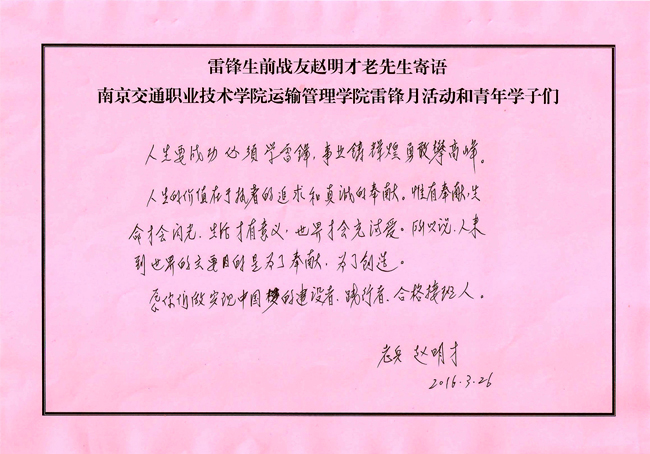 雷锋生前战友赵明才老先生寄语
南京交通职业技术学院运输管理学院雷锋月活动和青年学子们
人生要成功必须学雷锋,事业铸辉煌勇敢攀高峰。
人生的价值在于执着的追求和真诚的奉献。惟有奉献,生
命才会闪光、生活才有意义,世界才会充满爱。所以说,人来
到世界的主要目的是为了奉献、为了创造。
愿你们做实现中国梦的建设者、践行者、合格接班人。
老兵 赵明才
2016.3.26